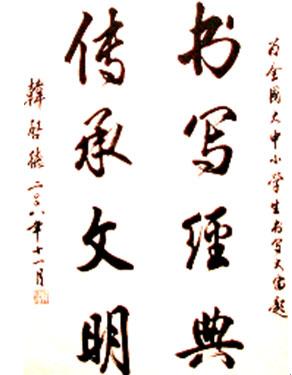 为全國大中小学生书写大赛题
书写經典
传承文明
韓啓德二〇〇八年十一月